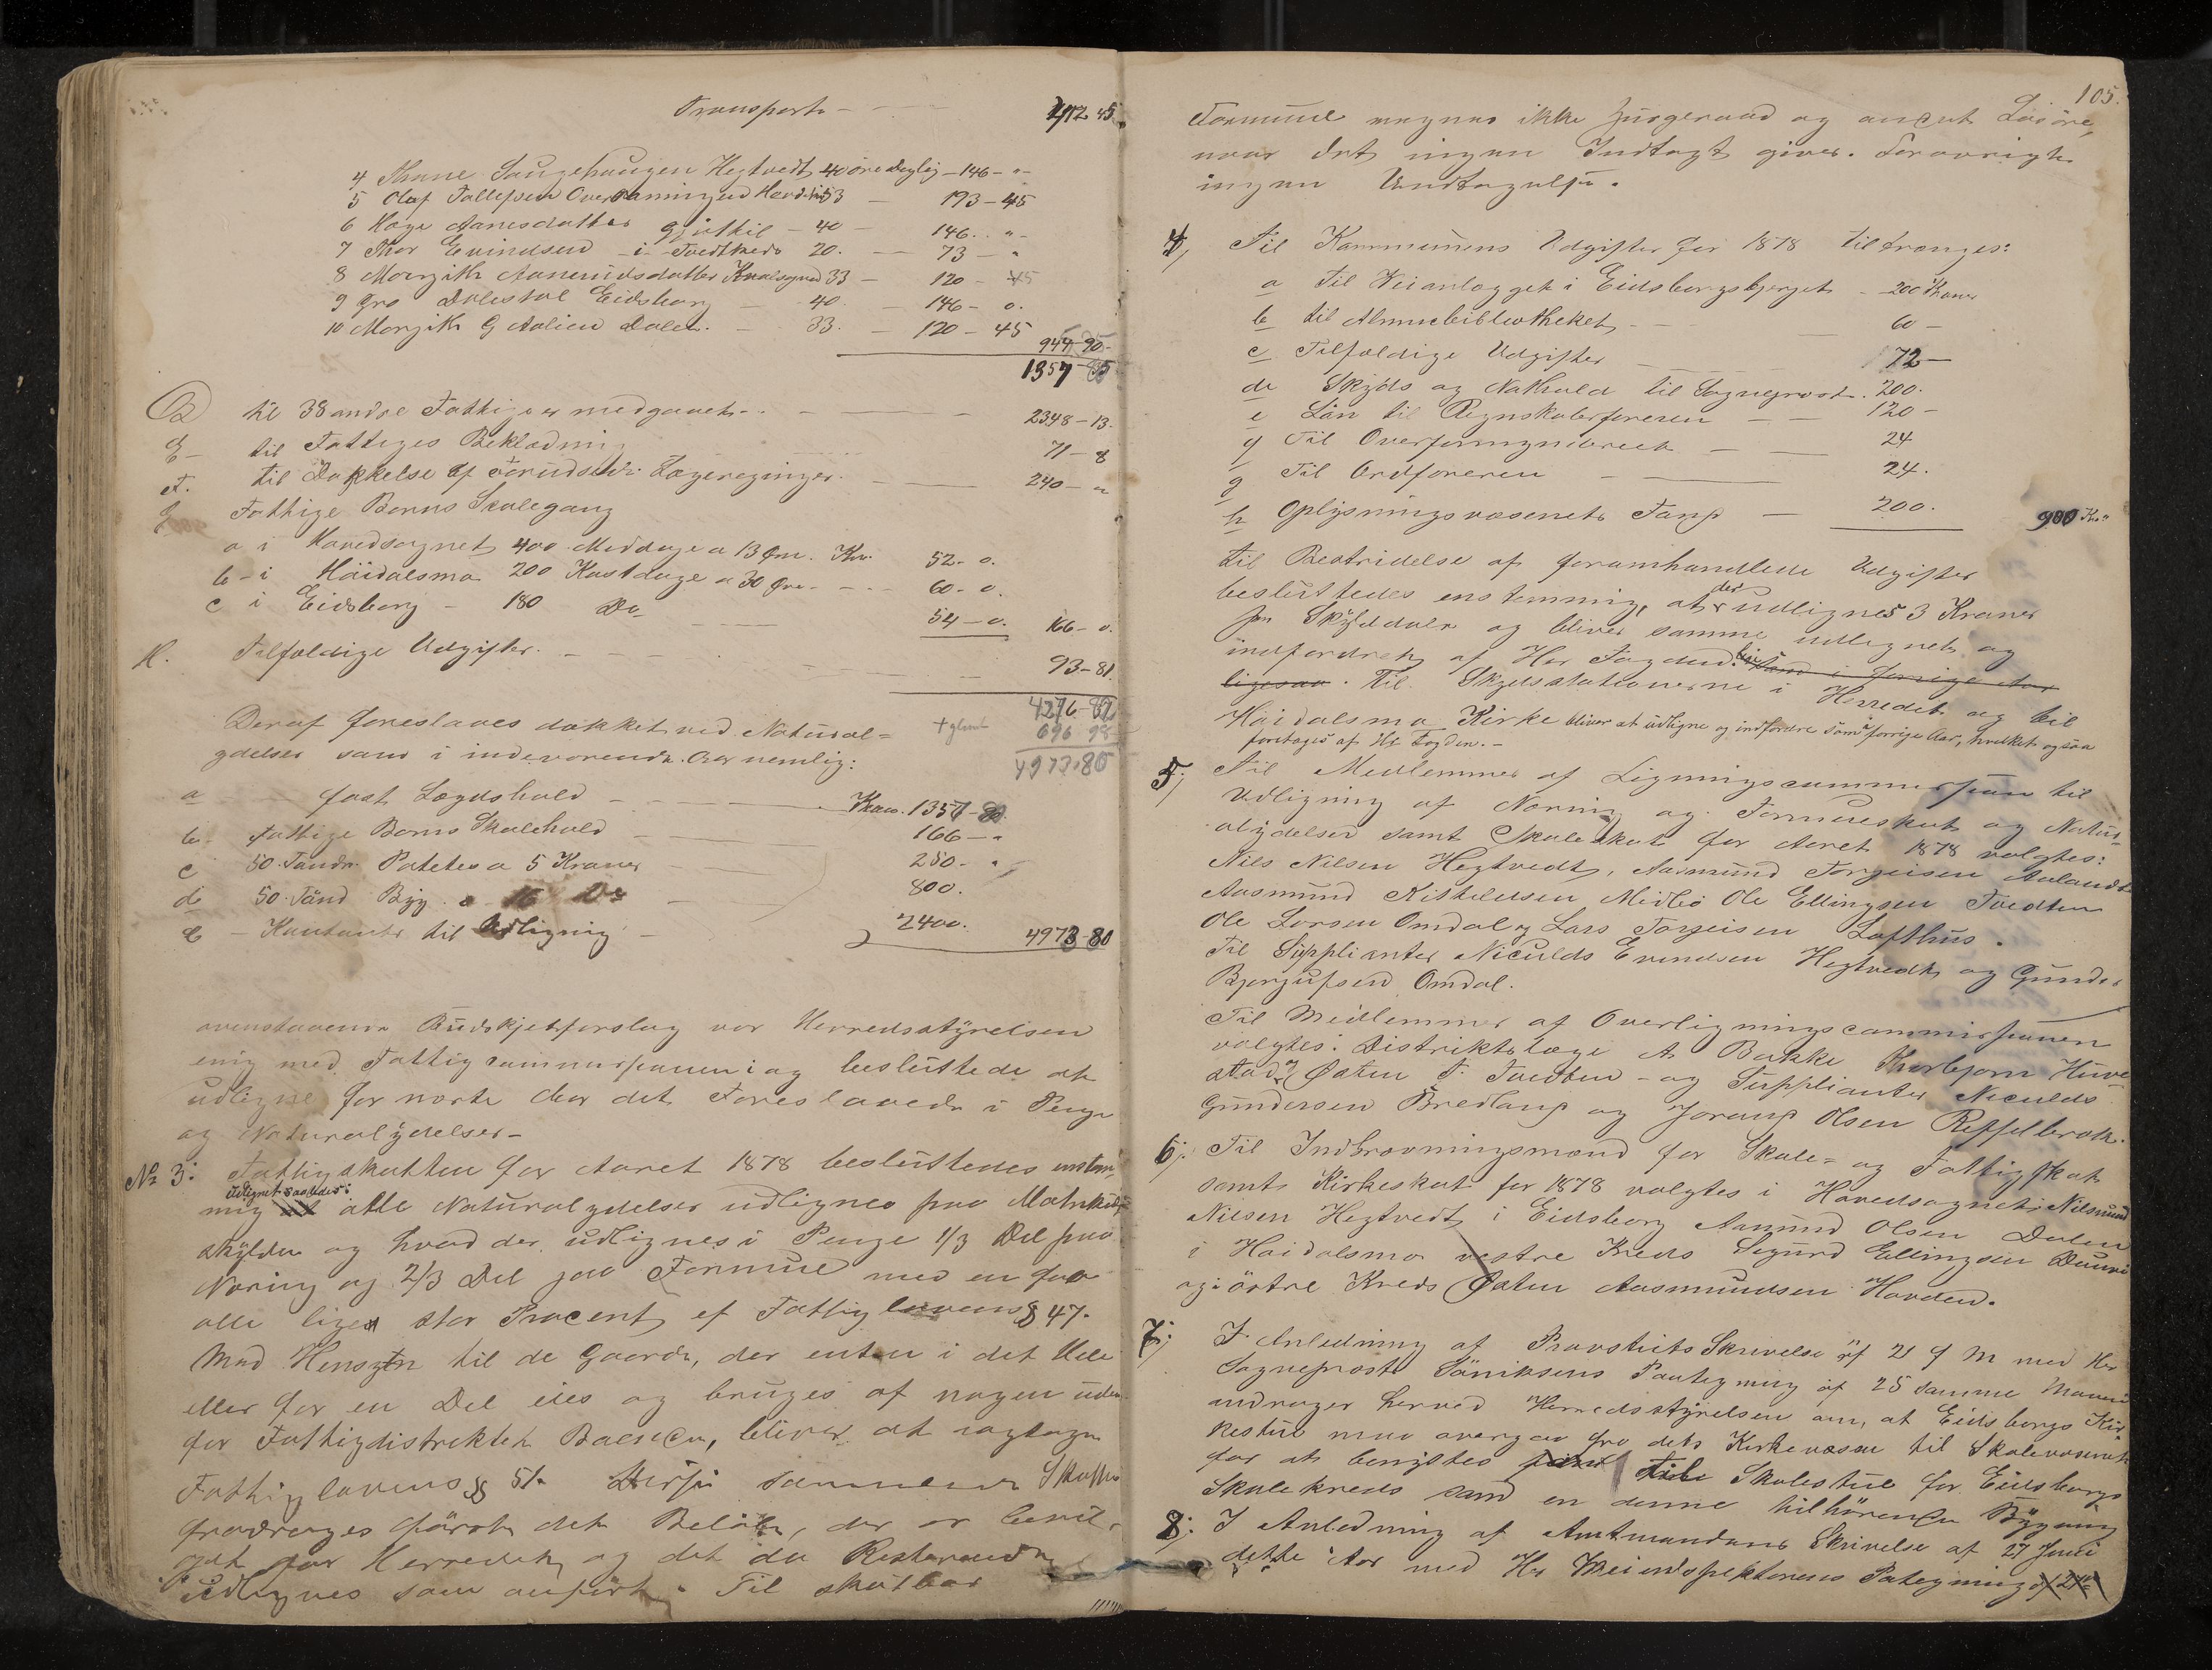 Transport - 412 45
4 Anne Haugehaugen Hegtvedt 40 øre Daglig - 146 - "
5 Olaf Tallefsen 53 - 193 - 45
6 Hæge Aanesdatter - 40 - 146 - " -
7 Thor Evindsen i Tvedtkrds 20. - 73 - "
8 Margith Aanundsdatter 33 - 120 - 45
9 Gro Dalestøl Eidsborg - 40. - 146 - 0.
10 Margith G Aalien Dalen. - 33. - 120 - 45
944-90.
1357-35
D til 38 andre Fattige er medgaaet - 2348 - 13.
E - til Fattiges Beklædning 71 - 8
F. til Dækkelse af Lægeregninger. 240 - "
G Fattige Børns Skolegang
a i Hovedsognet 400 Middage a 13 Øre. Kr. 52 - 0.
b - i Høidalsmo 200 Kostdage a 30 Øre - 60 - 0.
c i Eidsborg - 180 Do 54 - 0. 166 - 0.
H. Tilfældige Udgifter. - 93 - 81.
4276-87
Deraf foreslaaes dækket ved Natural= 696 98
ydelser som i indeværende Aar nemlig: 4973.85
a fast Lægdshold - Kron. 1357-80
b. Fattige Børns Skolehold 166 - "
c 50 Tønder Poteter a 5 Kroner 250 - "
d 50 Tønd Byg a 16 Do 800.
e - Kontante til Udligning - 2400. 4973-80
ovenstaaende Budskjetforslag var Herredsstyrelsen
enig med Fattigcommissionen i og besluttede at
udligne for næste Aar det Foreslaaede i Penge
og Naturalydelser -
No 3: Fattigskatten for Aaret 1878 besluttedes enstem
udlignet saaledes:
mig alle Naturalydelser udlignes paa Matrikul
skylden og hvad der udlignes i Penge 1/3 Del paa
Næring og 2/3 Del paa Formue med en for
alle lige stor Procent ef Fattiglovens § 47.
Med Hensyn til de Gaarde, der enten i det Hele
eller for en Del eies og bruges af nogen uden
for Fattigdistriktet Boende, bliver at iagtage
Fattiglovens § 51. Disse sammen Skatter
fradrages først det Beløb, der er bevil-
get for Herredet og det da Resterende
udlignes som anført. Til skatbar
105.
Formue regnes ikke Husgeraad og andet Løsøre,
naar det ingen Indtægt giver. Forøvrigt
ingen Undtagelse.
4, Til Kommunens Udgifter for 1878 tiltrænges:
a Til Veianlægget i Eidsborgsbjerget - 200 Kroner
b til Almuebibliotheket - 60 -
c Tilfældige Udgifter 72 -
d Skyds og Nathold til Sogneprest. 200.
e Løn til Regnskabsføreren - 120 -
f Til Overformynderiet - 24
g Til Ordføreren - 24.
h Oplysningsvæsenets Fond - 200. 900 Kr."
til Bestridelse af foranhandlede Udgifter
besluttedes enstemmig, at der udlignes 3 Kroner
pr Skylddaler og bliver samme udlignet og
indfordret af Her Fogden. som i forrige Aar
ligesaa. Til Skydsstationerne i Herredet og til
Høidalsmo Kirke bliver at udligne og indfordre som forrige Aar, hvilket ogsaa
foretages af Hr Fogden. -
5, Til Medlemmer af Ligningscommissionen til
Udligning af Næring og Formueskat og Natur-
alydelser samt Skoleskat for Aaret 1878 valgtes:
Nils Nilsen Hegtvedt, Aasmund Torgeisen Aalandt
Aasmund Kittelsen Midbø Ole Ellingsen Tvedten
Ole Larsen Omdal og Lars Torgeisen Lofthus.
Til Supplianter Niculds Evindsen Hegtvedt og Gunder
Bjørgufsen Omdal.
Til Medlemmer af Overligningscommissionen
valgtes: Distriktslæge A Bakke Thorbjørn Huve
stad? Østen T. Tvedten - og Supplianter Niculds
Gundersen Bredland og Jørund Olsen Reffelbrok.
6, Til Indkrævningsmænd for Skole= og Fattigskat
samt Kirkeskat for 1878 valgtes i Hovedsognet: Nils
Nilsen Hegtvedt i Eidsborg Aanund Olsen Dalen
i Høidalsmo vestre Kreds Sigurd Ellingsen
og i østre Kreds Østen Aasmundsen Hovden.
7, I Anledning af Provstiets Skrivelse af 21 f M med Her
Sogneprost Påtegning af 25 samme Maaned
andrager herved Herredsstyrelsen om, at Eidsborgs Kir
kestue maa overgaa fra dets Kirkevæsen til Skolevæsenet
for at benyttes til Skolestue for Eidsborgs
Skolekreds som en denne tilhørende Bygning
8, I Anledning af Amtmandens Skrivelse af 27 Juni
dette Aar med Hr Veiinspektørens Paategning af 2